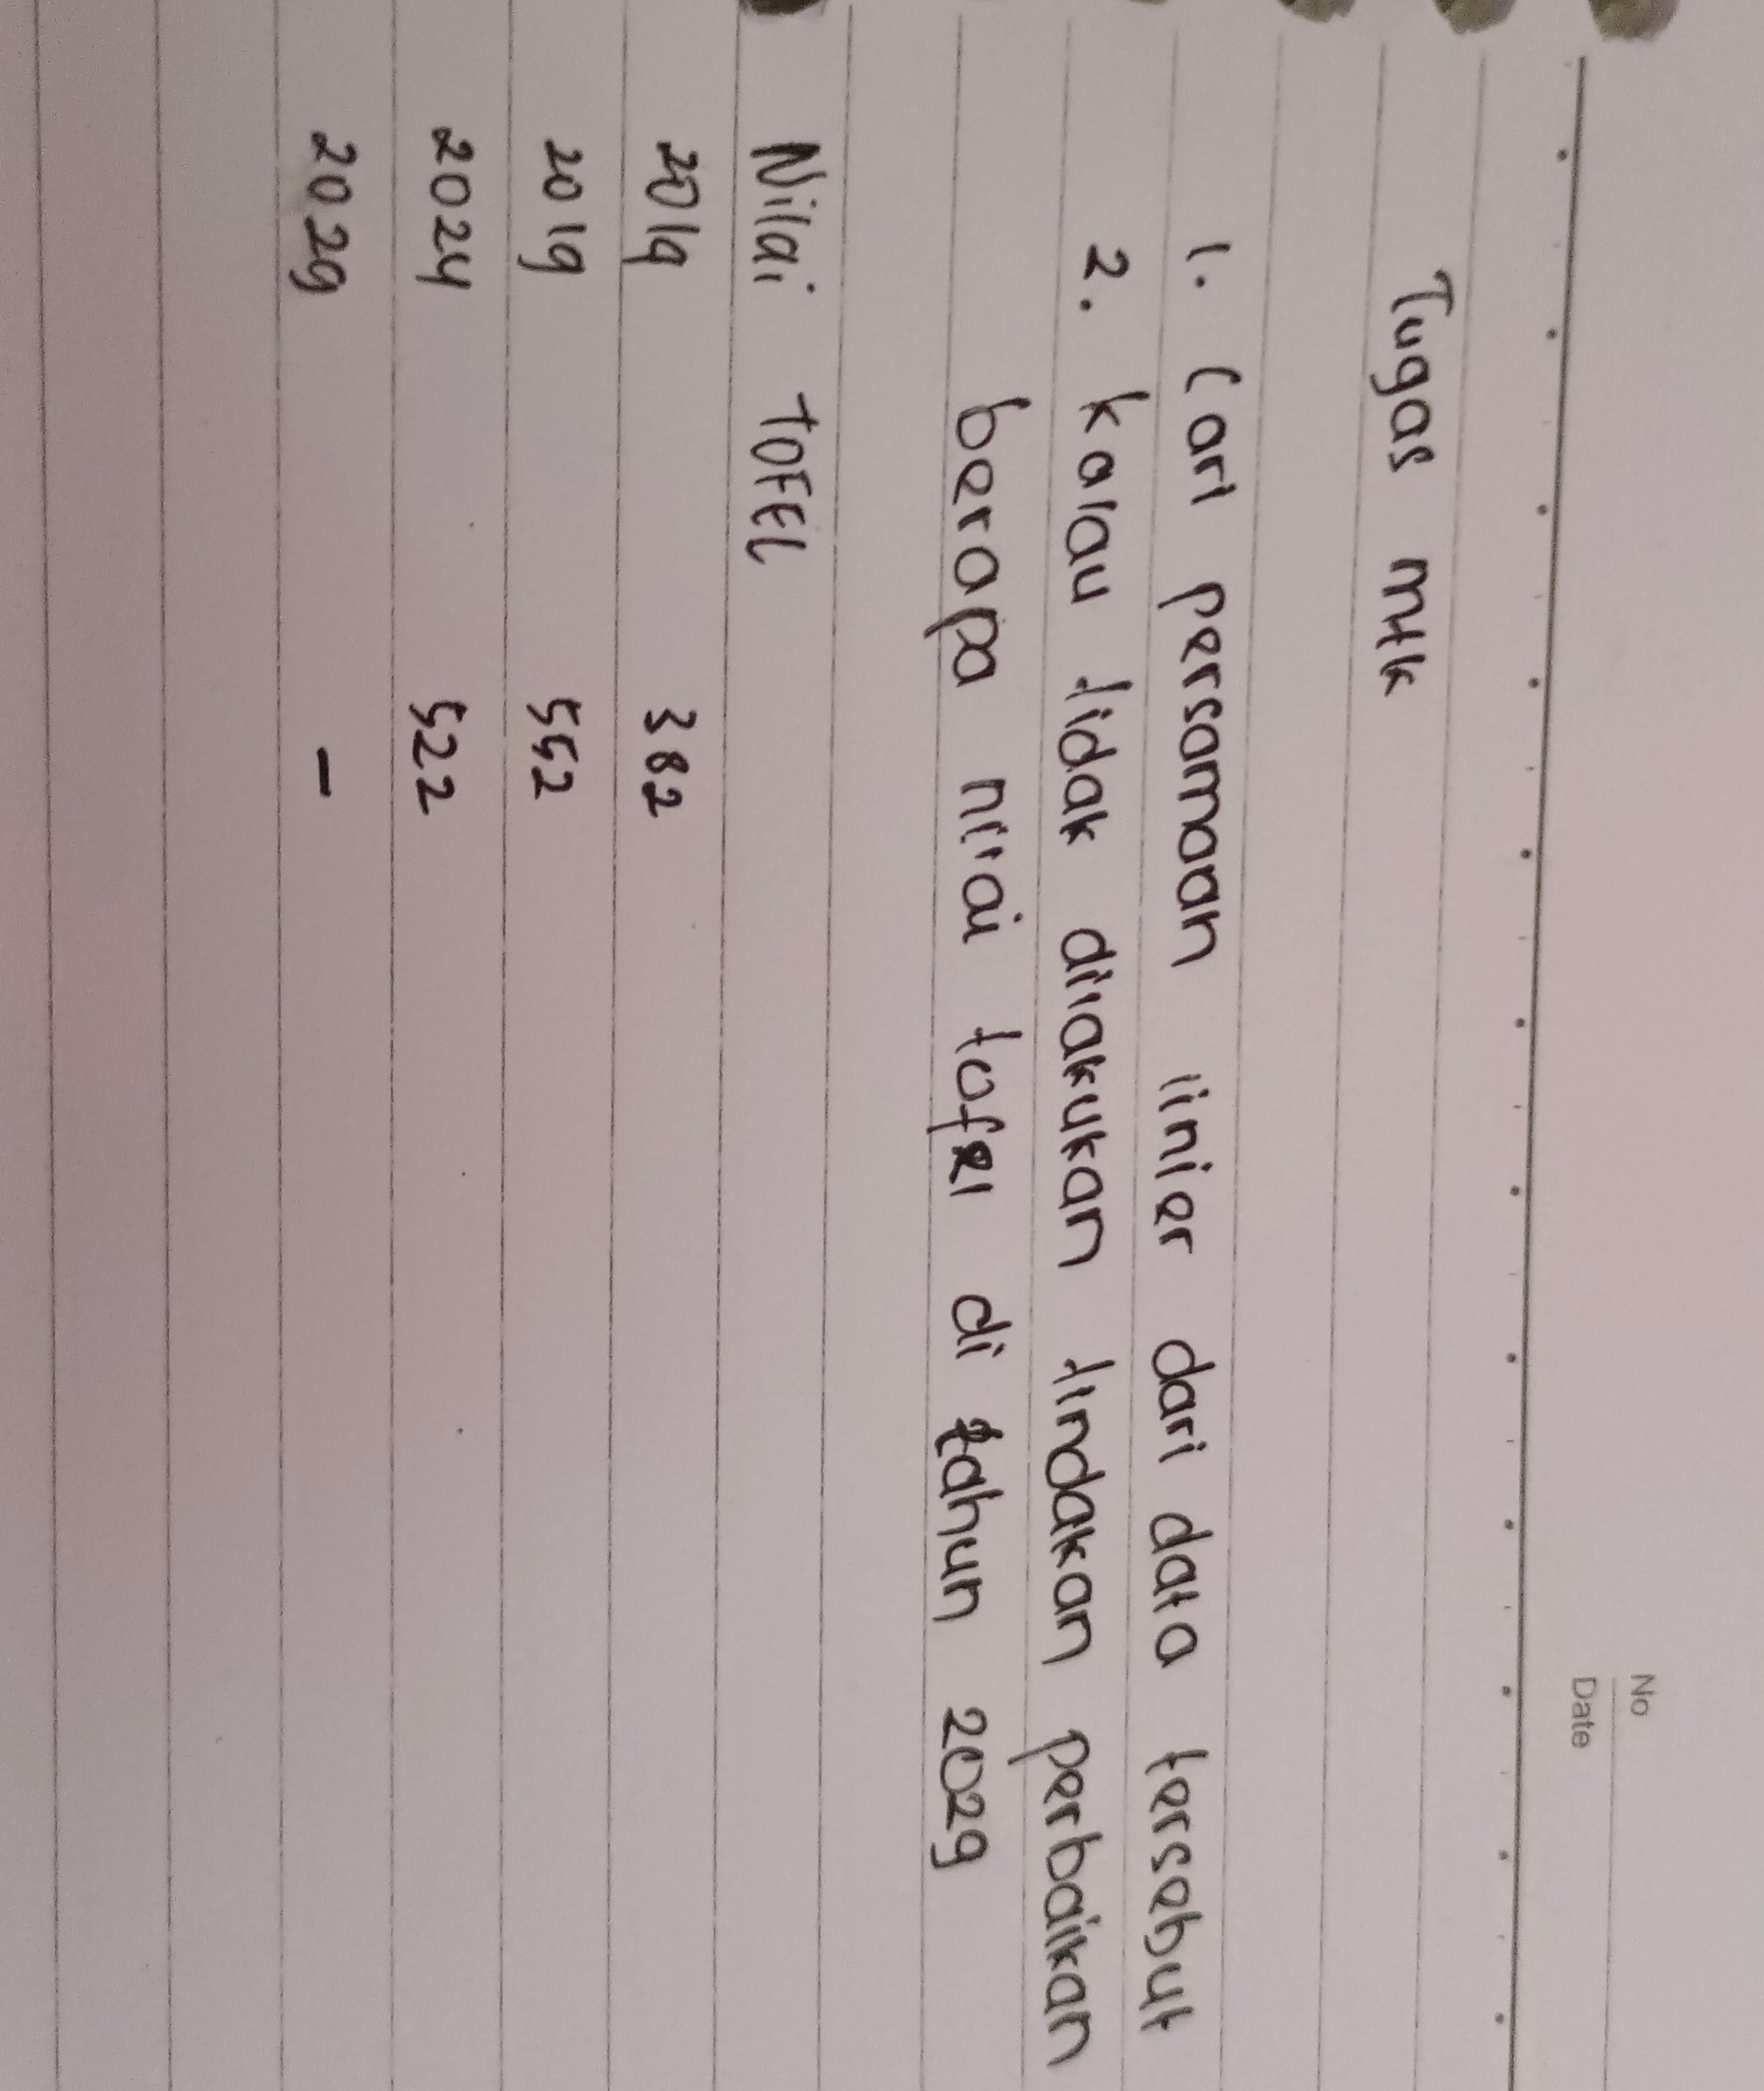 No
Date
Tugas mtk
1. Cari persamaan linier dari data tersebut
2. kalau tidak dilakukan tindakan perbaikan
berapa nilai tofel di tahun 2029
Nilai TOFEL
2019 382
2019 552
2024 522
2029 -